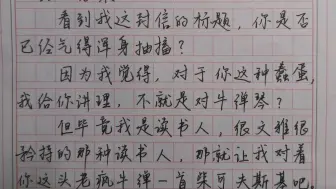 看到我这封信的标题，你是否
已经气得浑身抽搐？
因为我觉得，对于你这种蠢蛋，
我给你讲理，不就是对牛弹琴？
但毕竟我是读书人，很文雅很
矜持的那种读书人，那就让我对着
你这头老疯牛弹一首柴可夫斯基吧